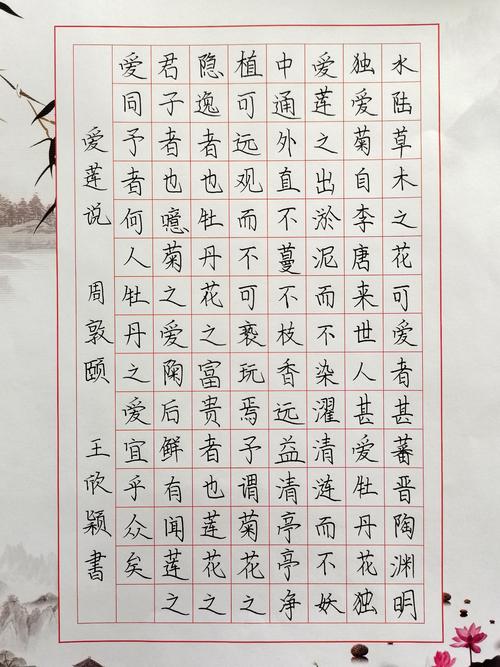 水陆草木之花可爱者甚蕃晋陶渊明
独爱菊自李唐来世人甚爱牡丹花独
爱莲之出淤泥而不染濯清涟而不妖
中通外直不蔓不枝香远益清亭亭净
植可远观而不可亵玩焉予谓菊花之
隐逸者也牡丹花之富贵者也莲花之
君子者也噫菊之爱陶后鲜有闻莲之
爱同予者何人牡丹之爱宜乎众矣
爱莲说 周敦颐 王欣颖書